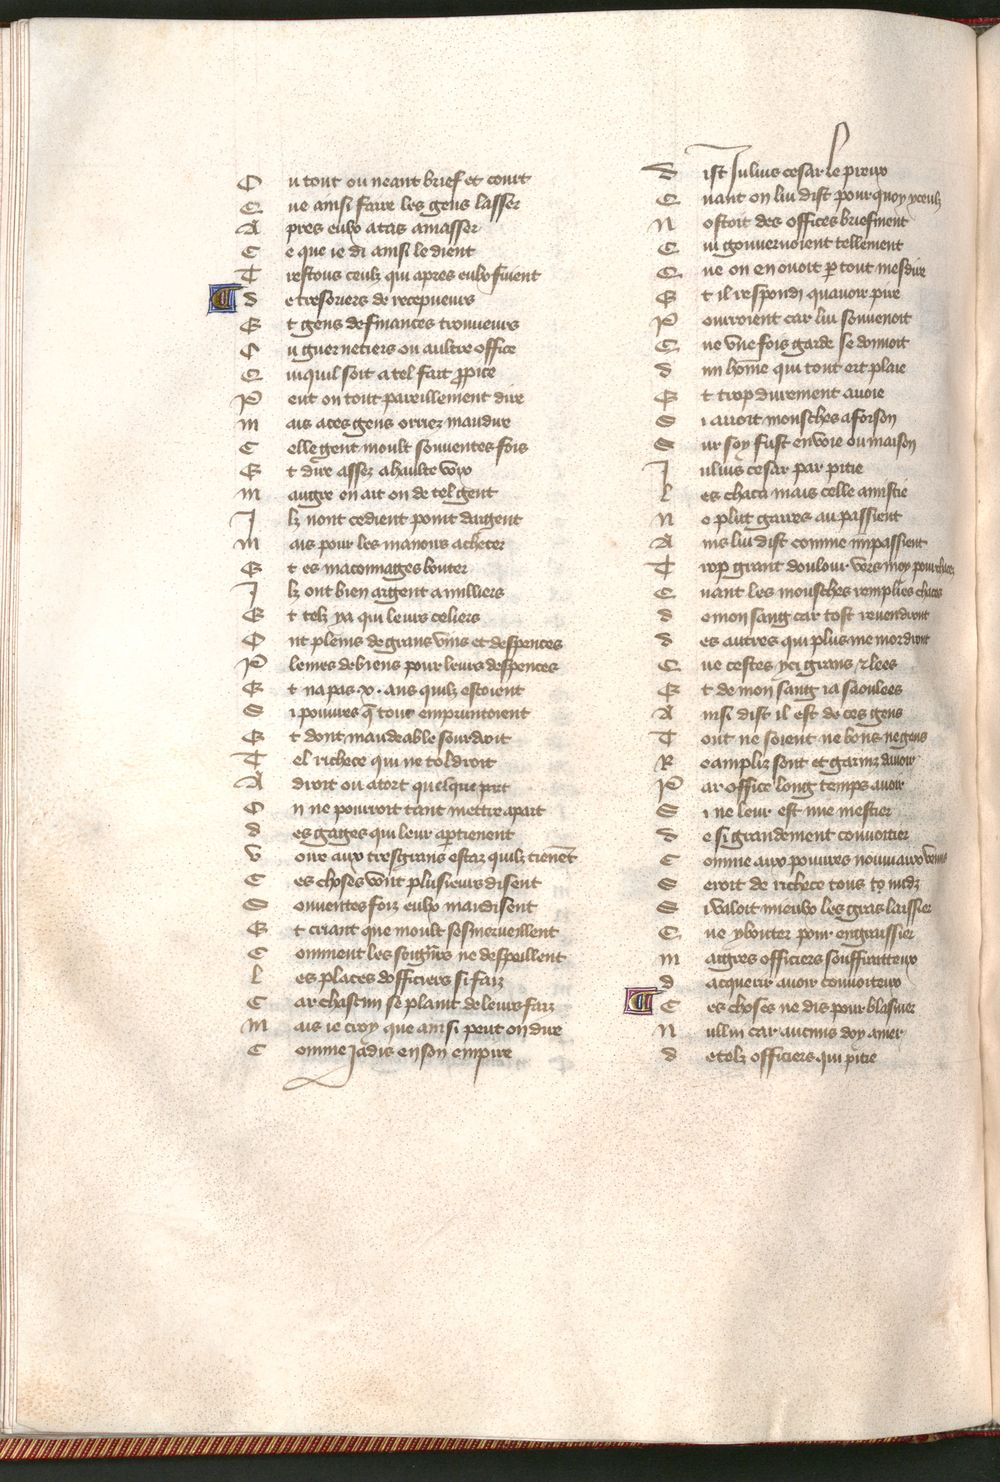 O u tout ou neant brief et court
Q ue ainsi faire les gens lasser
A pres eulx a tas amasser
C e que ie di ainsi le dient
T restous ceulx qui apres eulx fuient
D e tresoriers de recepueurs
E t gens de finances trouueurs
O u guernetiers ou aultre office
Q ui quil soit a tel fait ꝓpice
P eut on tout pareillement dire
M ais a ces gens orriez maudire
C elle gent moult souuentes fois
E t dire assez a haulte voix
M augre en ait on de tel gent
I lz nont cedient point dargent
M ais pour les manoirs acheter
E t es maconnages bouter
I lz ont bien argent a milliers
E t telz ya qui leurs celiers
O nt pleins de grans vins et despences
P leines de biens pour leurs despences
E t na pas .x. ans quilz estoient
S i pouures q̄ tout empruntoient
E t dont maudeable sourdroit
T el richece qui ne toldroit
A droit ou a tort quelque part
O n ne pourroit tant mettre apart
D es gages qui leur aꝑtienent
V oire aux tresgrans estaz quilz tienēt
C es choses vont plusieurs disent
S ouuentes foiz eulx maudisent
E t criant que moult sesmerueillent
C omment les seign̄rs ne despoillent
L es places dofficiers si faiz
C ar chascun se plaint de leurs faiz
M ais ie croy que ainsi peut on dire
C omme Jadis en son empire
D ist Julius cesar le preux
Q uant on lui dist pourquoy yceulx
N ostoit des offices briefment
Q ui gouuernoient tellement
Q ue on en ouoit ꝑ tout mesdire
E t il respondi quauoir pire
P ourroient car lui souuenoit
Q ue vne fois garde se donnoit
D un hōme qui tout ert plaie
E t trop durement auoie
S i auoit mousches a foison
S ur soy fust en voie ou maison
I ulius cesar par pitie
L es chaca mais celle amistie
N e plut gaires au passient
A ins lui dist comme impassient
T rop grant doulour vers moy pourchaces
Q uant les mousches remplies chaces
D e mon sang car tost reuendront
D es autres qui plus me mordront
Q ue cestes yci grans ⁊ lees
E t de mon sang ia saoulees
A insi dist il est de ces gens
T out ne soient ne bons ne gens
R eampliz sont et garniz dauoir
P ar office long temps auoir
S i ne leur est mie mestier
D e si grandement conuoitier
C omme aux pouures nouuiaux venus
S eroit de richece tous to nudz
S i valoit mieulx les gras laissier
Q ue y bouter pour engraissier
M aigres officiers souffraitteux
D acquerir auoir conuoiteux
C es choses ne dis pour blasmer
N ullui car aucuns doy amer
D e telz officiers qui pitie